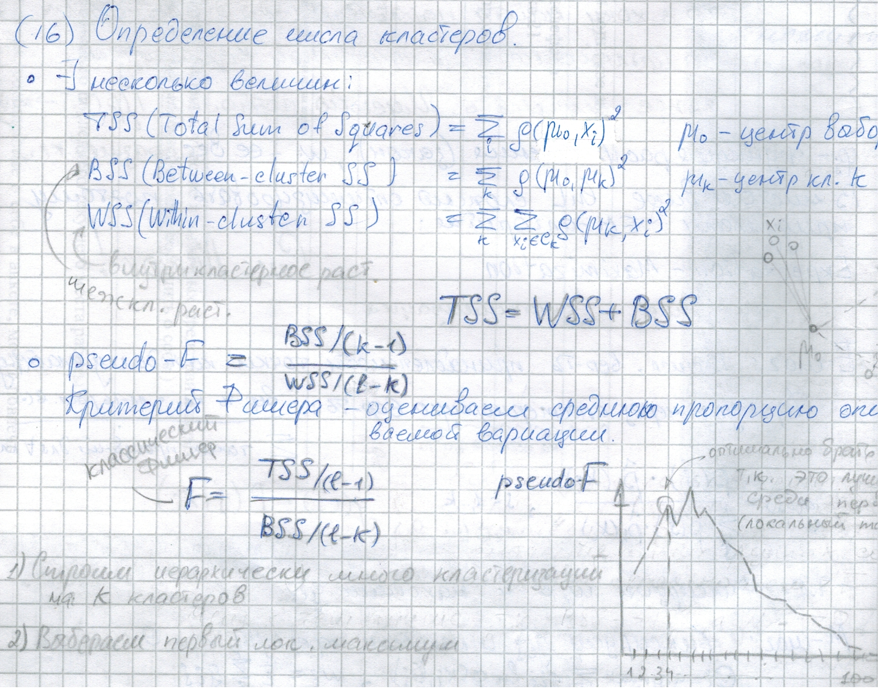 (16) Определение числа кластеров.
∃ несколько величин:
TSS (Total Sum of Squares) = Σ_i ρ(μ₀, x_i)² μ₀ - центр выбо
BSS (Between-cluster SS) = Σ_k ρ(μ₀, μ_k)² μ_k - центр кл. k
WSS (Within-cluster SS) = Σ_k Σ_{x_i∈C_k} ρ(μ_k, x_i)²
x_i
внутрикластерное раст.
межкл. раст.
TSS = WSS + BSS
μ₀
pseudo-F = BSS/(k-1) / WSS/(ℓ-k)
Критерий Фишера - оцениваем среднюю пропорцию опи
ваемой вариации.
классический
Фишер
F = TSS/(ℓ-1) / BSS/(ℓ-k)
pseudo-F
оптимально брать
т.к. это
среди
(локальный
1) Строим иерархически много кластеризаций
на K кластеров
2) Выбераем первый лок. максимум
1 2 3 4
100